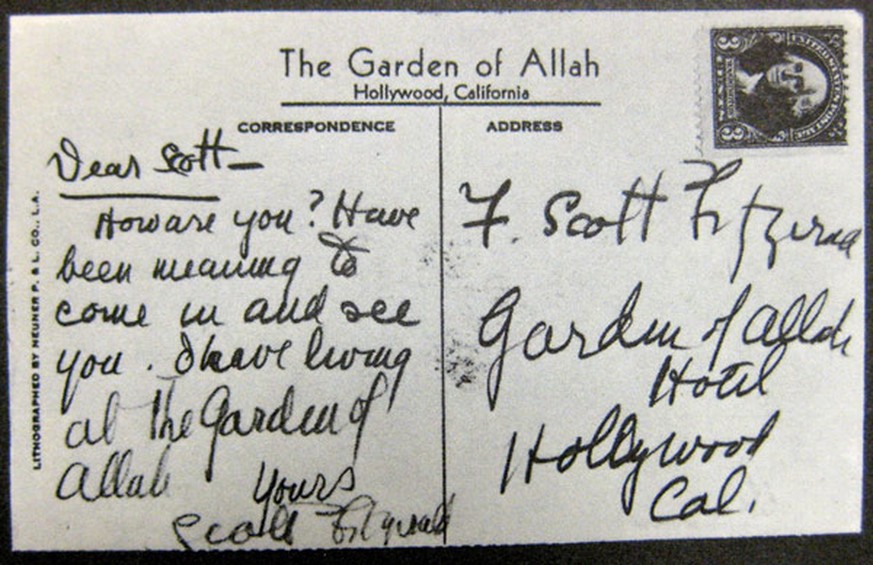 The Garden of Allah
Hollywood, California
CORRESPONDENCE
ADDRESS
Dear Scott—
How are you? Have
been meaning to
come in and see
you. I have living
at the Garden of
Allah
Yours
Scott Fitzgerald
F. Scott Fitzgerald
Garden of Allah
Hotel
Hollywood
Cal.
LITHOGRAPHED BY NEUNER P. & L. CO., L.A.
UNITED STATES POSTAGE
3 3